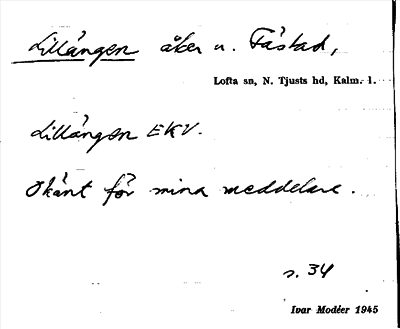 Lillängen åker u. Fåstad,
Lofta sn, N. Tjusts hd, Kalm. l.
Lillängen EKV.
Okänt för mina meddelare.
s. 34
Ivar Modéer 1945